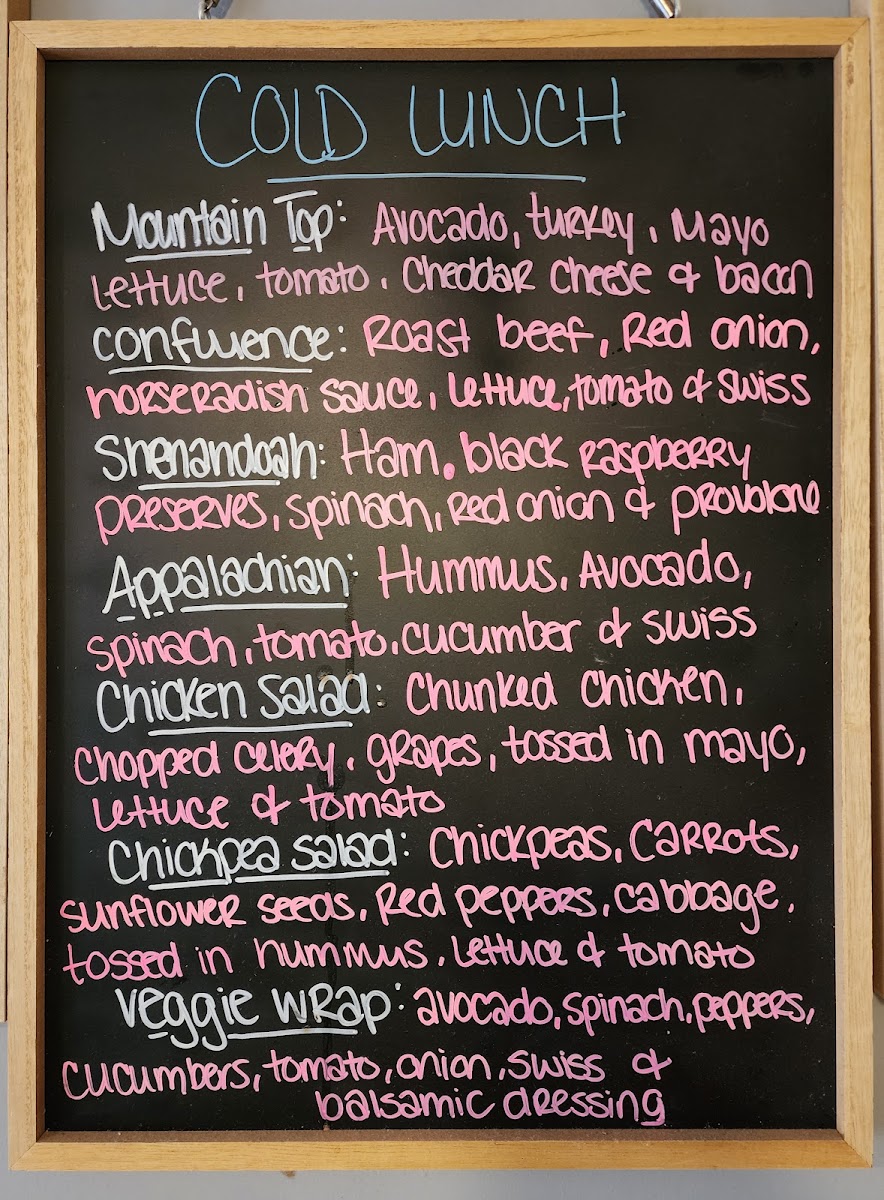 COLD LUNCH
Mountain Top: Avocado, turkey, Mayo
lettuce, tomato, Cheddar Cheese & bacon
Confluence: Roast beef, Red onion,
horseradish sauce, lettuce, tomato & Swiss
Shenandoah: Ham, black raspberry
preserves, spinach, red onion & provolone
Appalachian: Hummus, Avocado,
spinach, tomato, cucumber & swiss
Chicken Salad: Chunked chicken,
chopped celery, grapes, tossed in mayo,
lettuce & tomato
Chickpea salad: Chickpeas, Carrots,
sunflower seeds, Red peppers, cabbage,
tossed in hummus, lettuce & tomato
Veggie wrap: avocado, spinach, peppers,
cucumbers, tomato, onion, swiss &
balsamic dressing